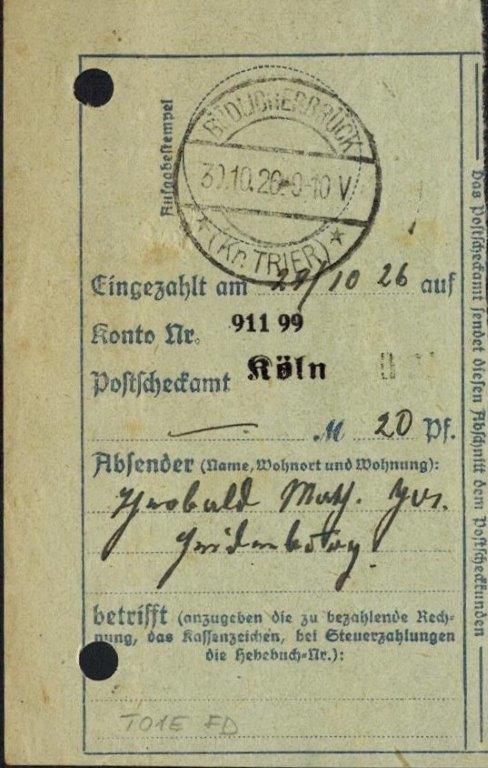 Ausgabestempel
BÜDLICHERBRÜCK
30.10.26.9-10 V
(Kr. TRIER)
Eingezahlt am 29/10 26 auf
Konto Nr. 911 99
Postscheckamt Köln
— M 20 Pf.
Absender (Name, Wohnort und Wohnung):
Math.
betrifft (anzugeben die zu bezahlende Rech-
nung, das Kassenzeichen, bei Steuerzahlungen
die Hebebuch-Nr.):
T01E FD
Das Postscheckamt sendet diesen Abschnitt dem Postscheckkunden